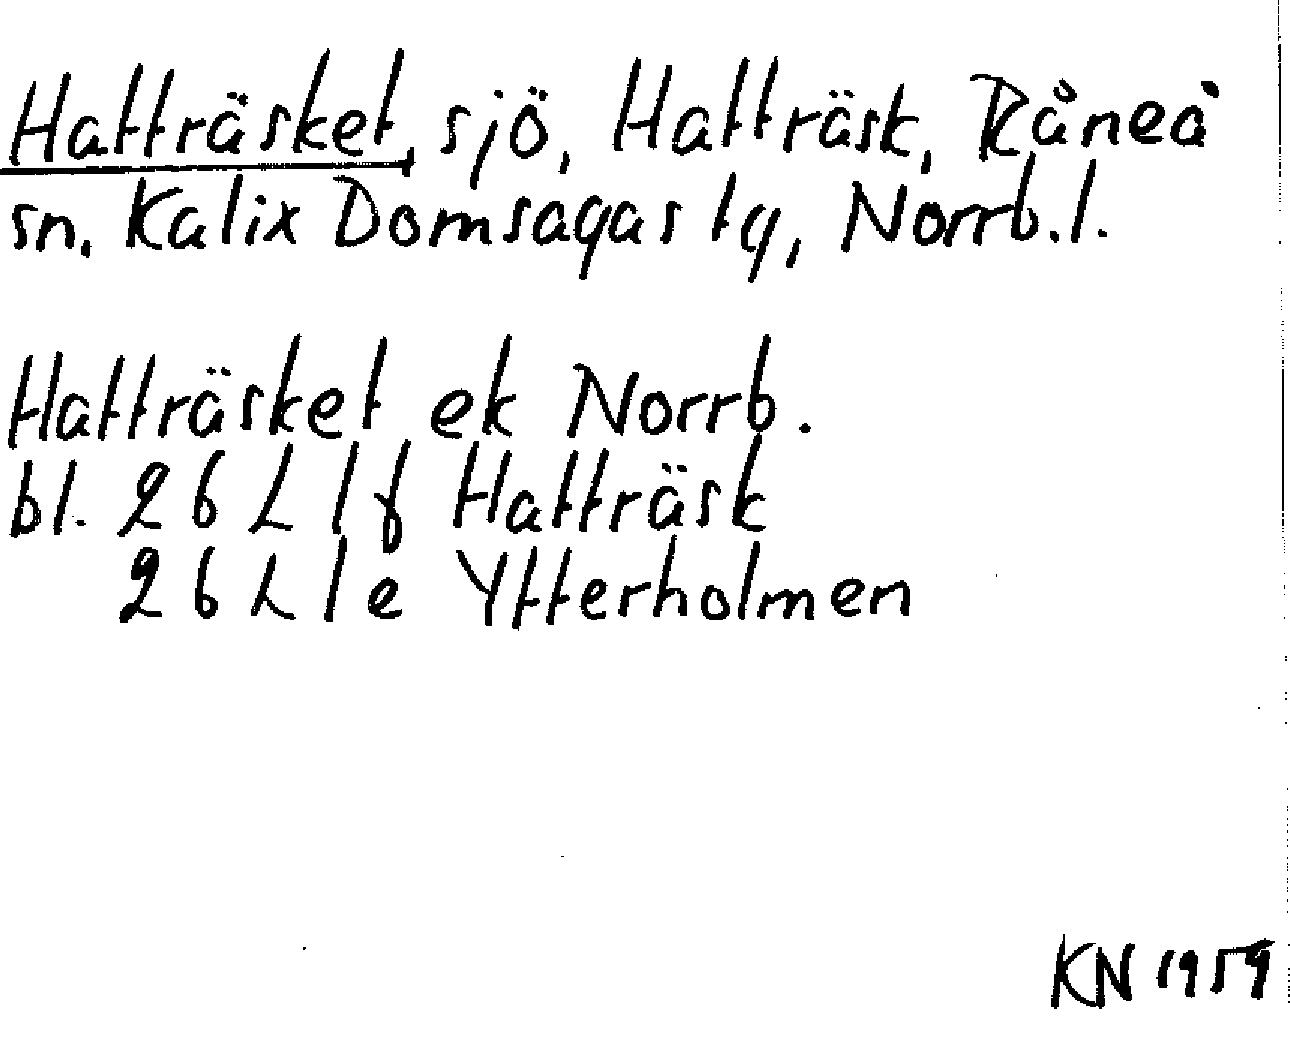 Hatträsket, sjö, Hatträsk, Råneå
sn. Kalix Domsagas tg, Norrb.l.
Hatträsket ek Norrb.
bl. 26 L 1 f Hatträsk
26 L 1 e Ytterholmen
KN 1959